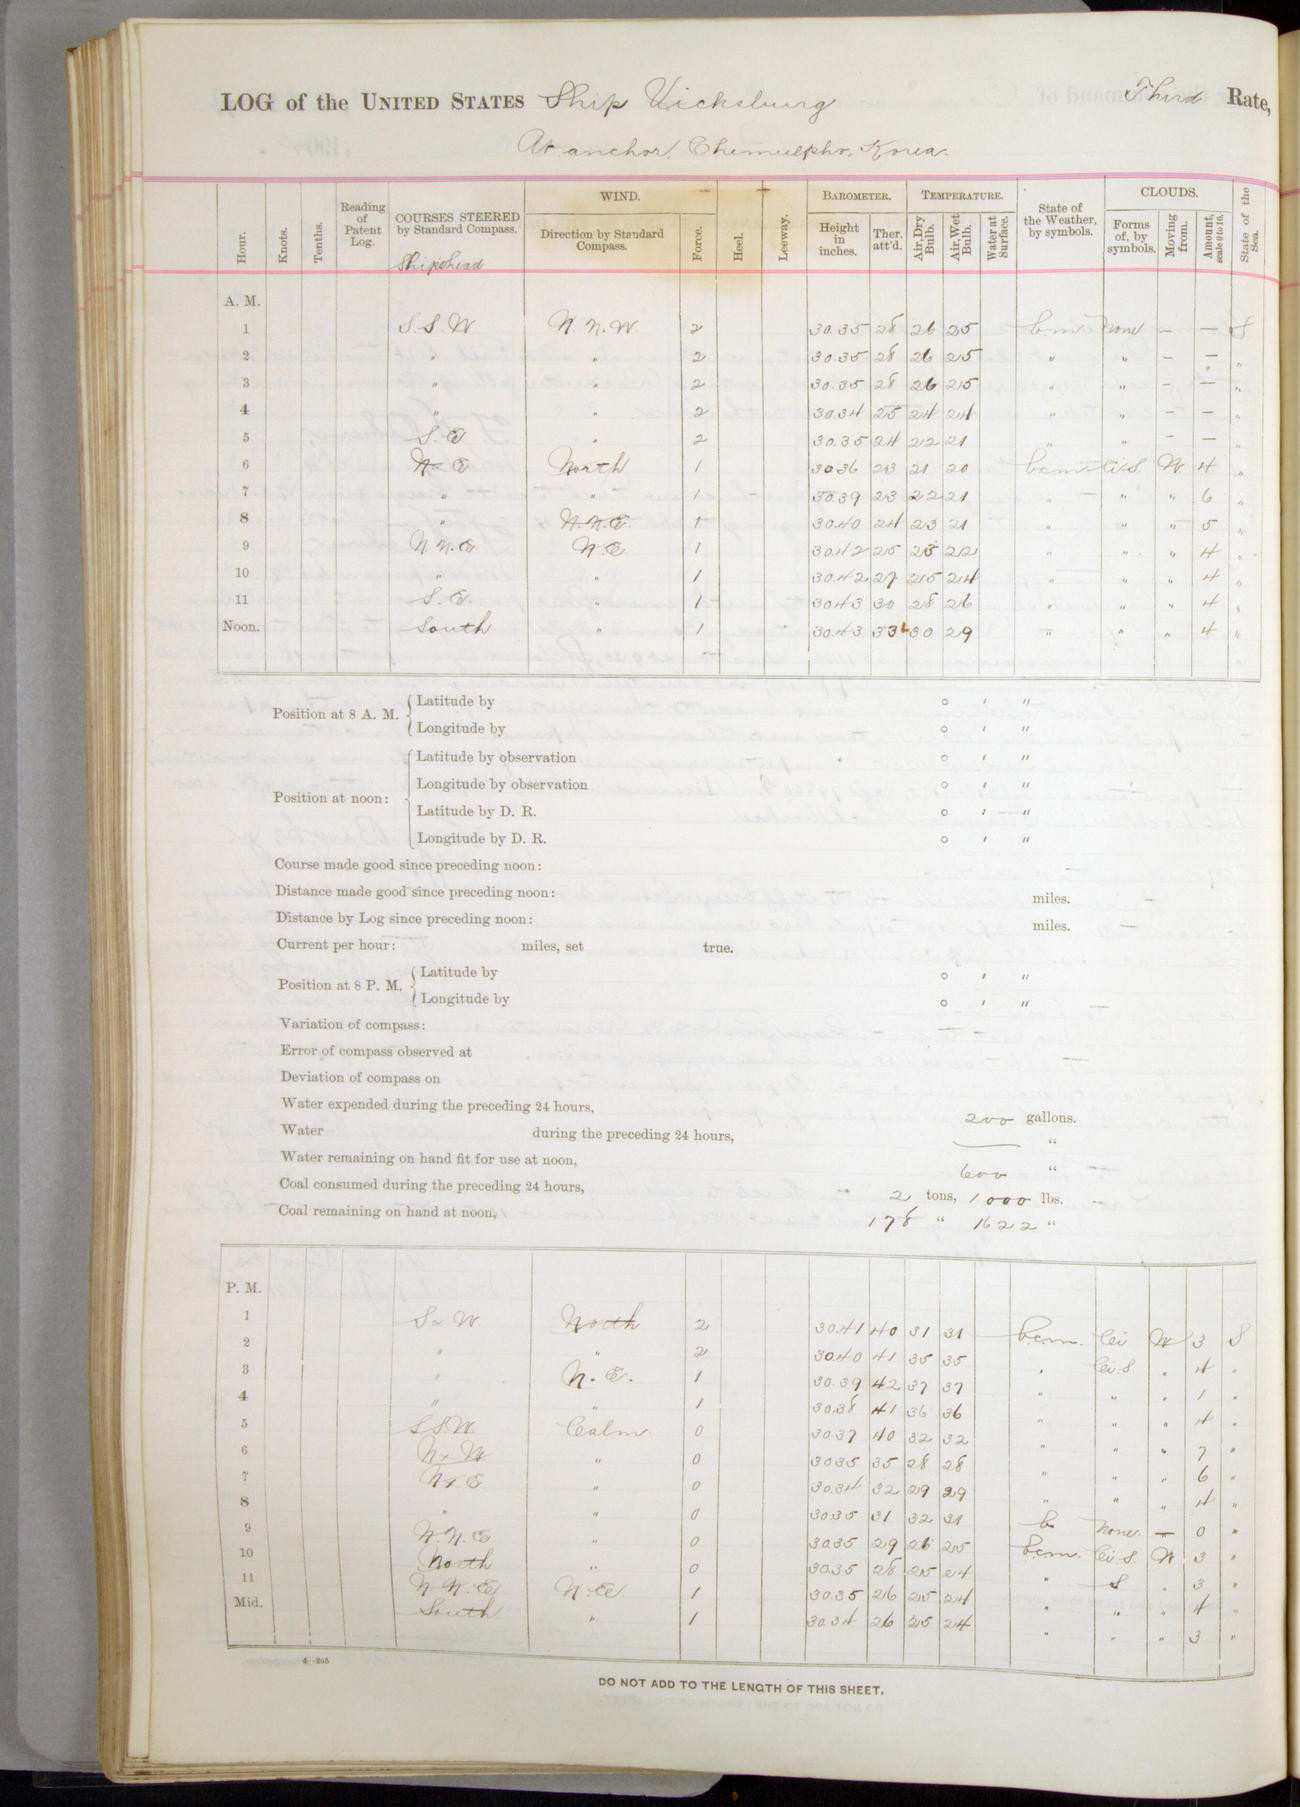 LOG of the UNITED STATES Ship Vicksburg Third Rate,
At anchor, Chemulpho, Korea.
Hour. Knots. Tenths. Reading of Patent Log. COURSES STEERED by Standard Compass. Shipshead WIND. Direction by Standard Compass. Force. Heel. Leeway. BAROMETER. Height in inches. Ther. att'd. TEMPERATURE. Air, Dry Bulb. Air, Wet Bulb. Water at Surface. State of the Weather, by symbols. CLOUDS. Forms of, by symbols. Moving from. Amount, scale 0 to 10. State of the Sea.
A. M.
1 S.S.W N.N.W. 2 30.35 28 26 25 b.m. None — — S
2 " " 2 30.35 28 26 25 " " — — "
3 " " 2 30.35 28 26 25 " " — — "
4 " " 2 30.34 25 24 24 " " — — "
5 S.E " 2 30.35 24 22 21 " " — — "
6 NxE North 1 30.36 23 21 20 bcm Ci.S. W 4 "
7 " " 1 30.39 23 22 21 " " " 6 "
8 " N.N.E. 1 30.40 24 23 21 " " " 5 "
9 N.N.E N.E 1 30.42 25 23 22 " " " 4 "
10 " " 1 30.42 27 25 24 " " " 4 "
11 S.E " 1 30.43 30 28 26 " " " 4 "
Noon. South " 1 30.43 33 30 29 " " " 4 "
Position at 8 A. M. Latitude by ° ' "
Longitude by ° ' "
Position at noon: Latitude by observation ° ' "
Longitude by observation ° ' "
Latitude by D. R. ° ' "
Longitude by D. R. ° ' "
Course made good since preceding noon:
Distance made good since preceding noon: miles.
Distance by Log since preceding noon: miles.
Current per hour: miles, set true.
Position at 8 P. M. Latitude by ° ' "
Longitude by ° ' "
Variation of compass:
Error of compass observed at
Deviation of compass on
Water expended during the preceding 24 hours, 200 gallons.
Water during the preceding 24 hours, — "
Water remaining on hand fit for use at noon, 600 "
Coal consumed during the preceding 24 hours, 2 tons, 1000 lbs.
Coal remaining on hand at noon, 178 " 1622 "
P. M.
1 SxW. North 2 30.41 40 31 31 bcm. Ci W 3 S
2 " " 2 30.40 41 35 35 " Ci.S. " 4 "
3 " N.E. 1 30.39 42 37 37 " " " 1 "
4 " " 1 30.38 41 36 36 " " " 4 "
5 SSW Calm 0 30.37 40 32 32 " " " 7 "
6 NxW " 0 30.35 35 28 28 " " " 6 "
7 NxE " 0 30.34 32 29 29 " " " 4 "
8 " " 0 30.35 31 32 31 b None. — 0 "
9 N.N.E. " 0 30.35 29 26 25 bcm. Ci-S. W 3 "
10 North " 0 30.35 28 25 24 " S " 3 "
11 N.N.E N.E. 1 30.35 26 25 24 " " " 4 "
Mid. South " 1 30.34 26 25 24 " " " 3 "
4-265
DO NOT ADD TO THE LENGTH OF THIS SHEET.